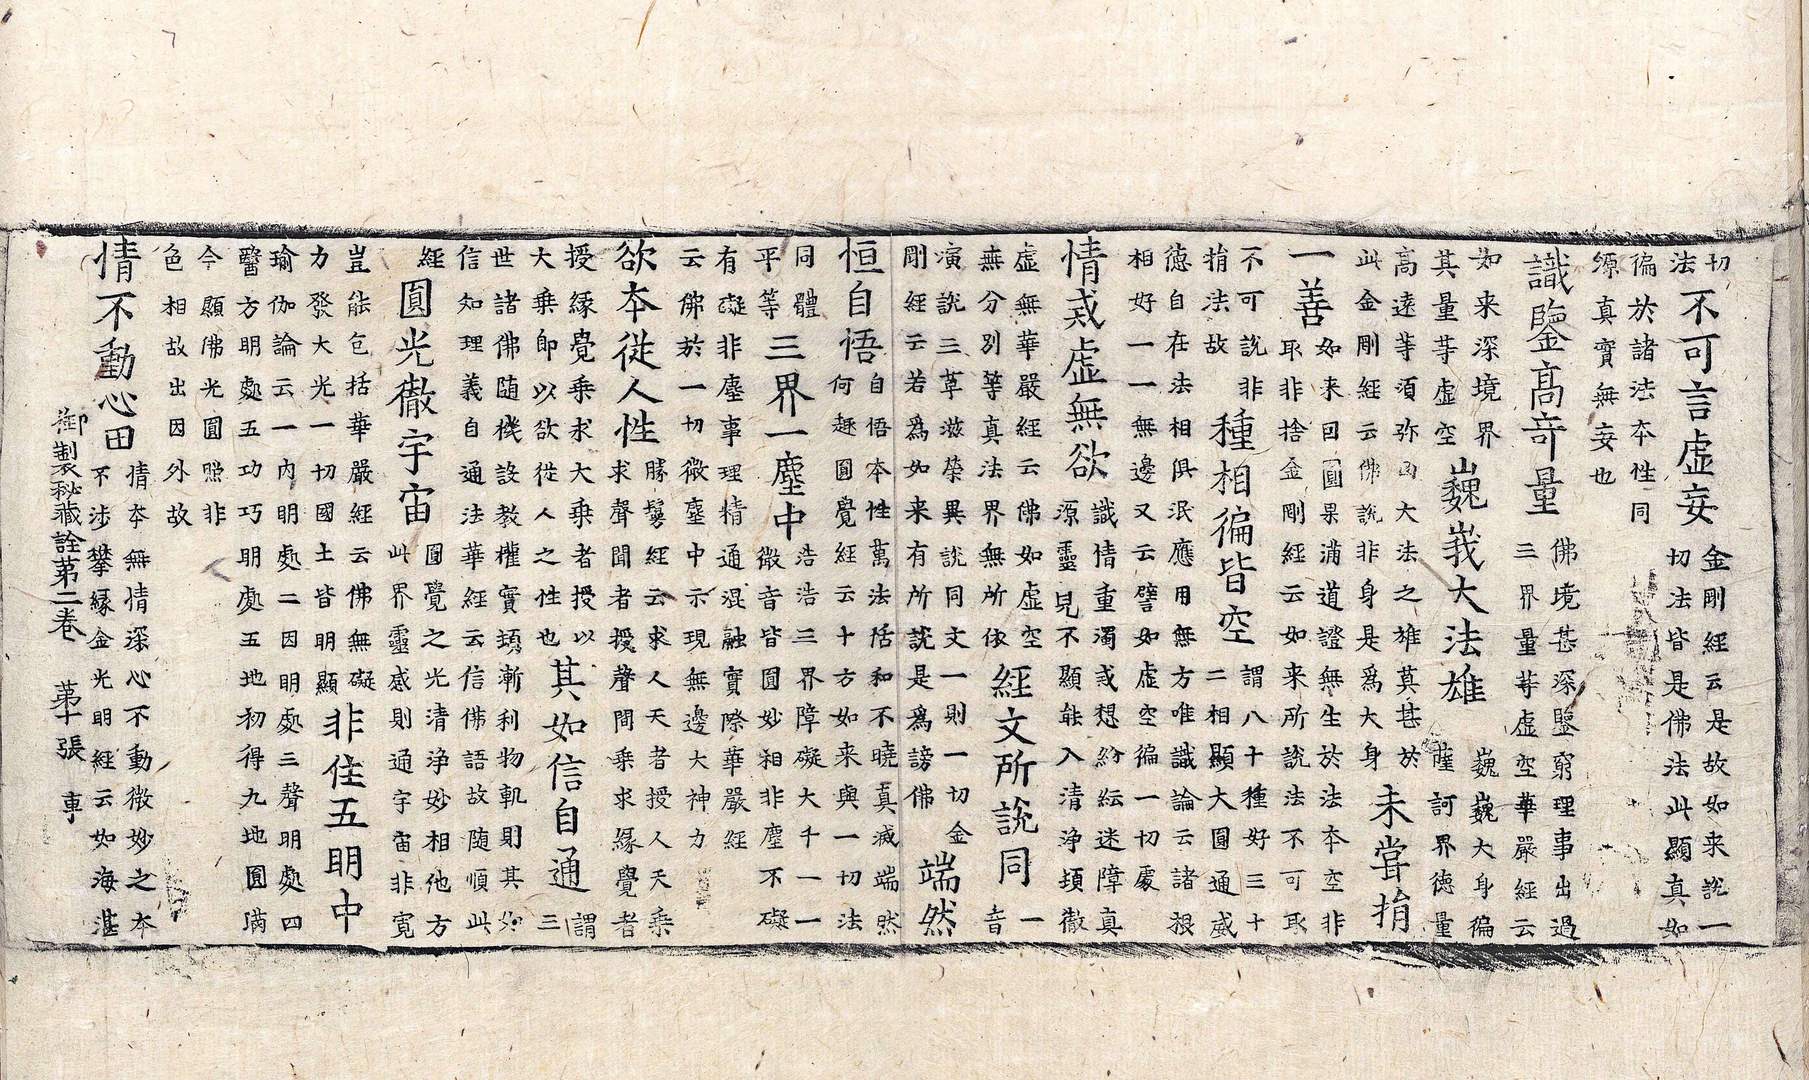 切
法
不可言虛妄
金剛經云是故如来說一
切法皆是佛法此顯真如
徧於諸法夲性同
源真實無妄也
識鑒高竒量
佛境甚深鑒窮理事出過
三界量等虛空華嚴經云
如来深境界
其量等虛空
巍峩大法雄
巍巍大身徧
薩訶界德量
高逺等須弥大法之雄莫甚於
此金剛經云佛說非身是爲大身
未甞捎
一善
如来因圓果滿道證無生於法夲空非
取非捨金剛經云如来所說法不可取
不可說非
捎法故
種相徧皆空
謂八十種好三十
二相顯大圓通感
德自在法相俱泯應用無方唯識論云諸报
相好一一無邊又云譬如虛空徧一切處
情或虛無欲
識情重濁或想紛紜迷障真
源靈皃不顯能入清淨頓徹
虛無華嚴經云佛如虛空
無分別等真法界無所依
經文所說同
一
音
演說三草滋榮異說同文一則一一切金
剛經云若爲如来有所說是爲謗佛
端然
恒自悟
自悟夲性萬法恬和不曉真滅端然
何趍圓覺經云十方如来與一切法
同體
平等
三界一塵中
浩浩三界障礙大千一一
微音皆圓妙相非塵不礙
有礙非塵事理情通混融實際華嚴經
云佛於一切微塵中示現無邊大神力
欲夲從人性
勝鬘經云求人天者授人天乘
求聲聞者授聲聞乘求緣覺者
授緣覺乘求大乘者授以
大乘即以欲從人之性也
其如信自通
謂
三
世諸佛随機設教權實頓漸利物軌則其如
信知理義自通法華經云信佛語故随順此
經
圓光徹宇宙
圓覺之光清淨妙相他方
此界靈感則通宇宙非寬
豈能包括華嚴經云佛無礙
力發大光一切國土皆明顯
非住五明中
瑜伽論云一内明處二因明處三聲明處四
醫方明處五功巧明處五地初得九地圓滿
今顯佛光圓照非
色相故出因外故
情不動心田
情夲無情深心不動微妙之夲
不涉攀緣金光明經云如海湛
御製秘藏詮第二卷 第十張